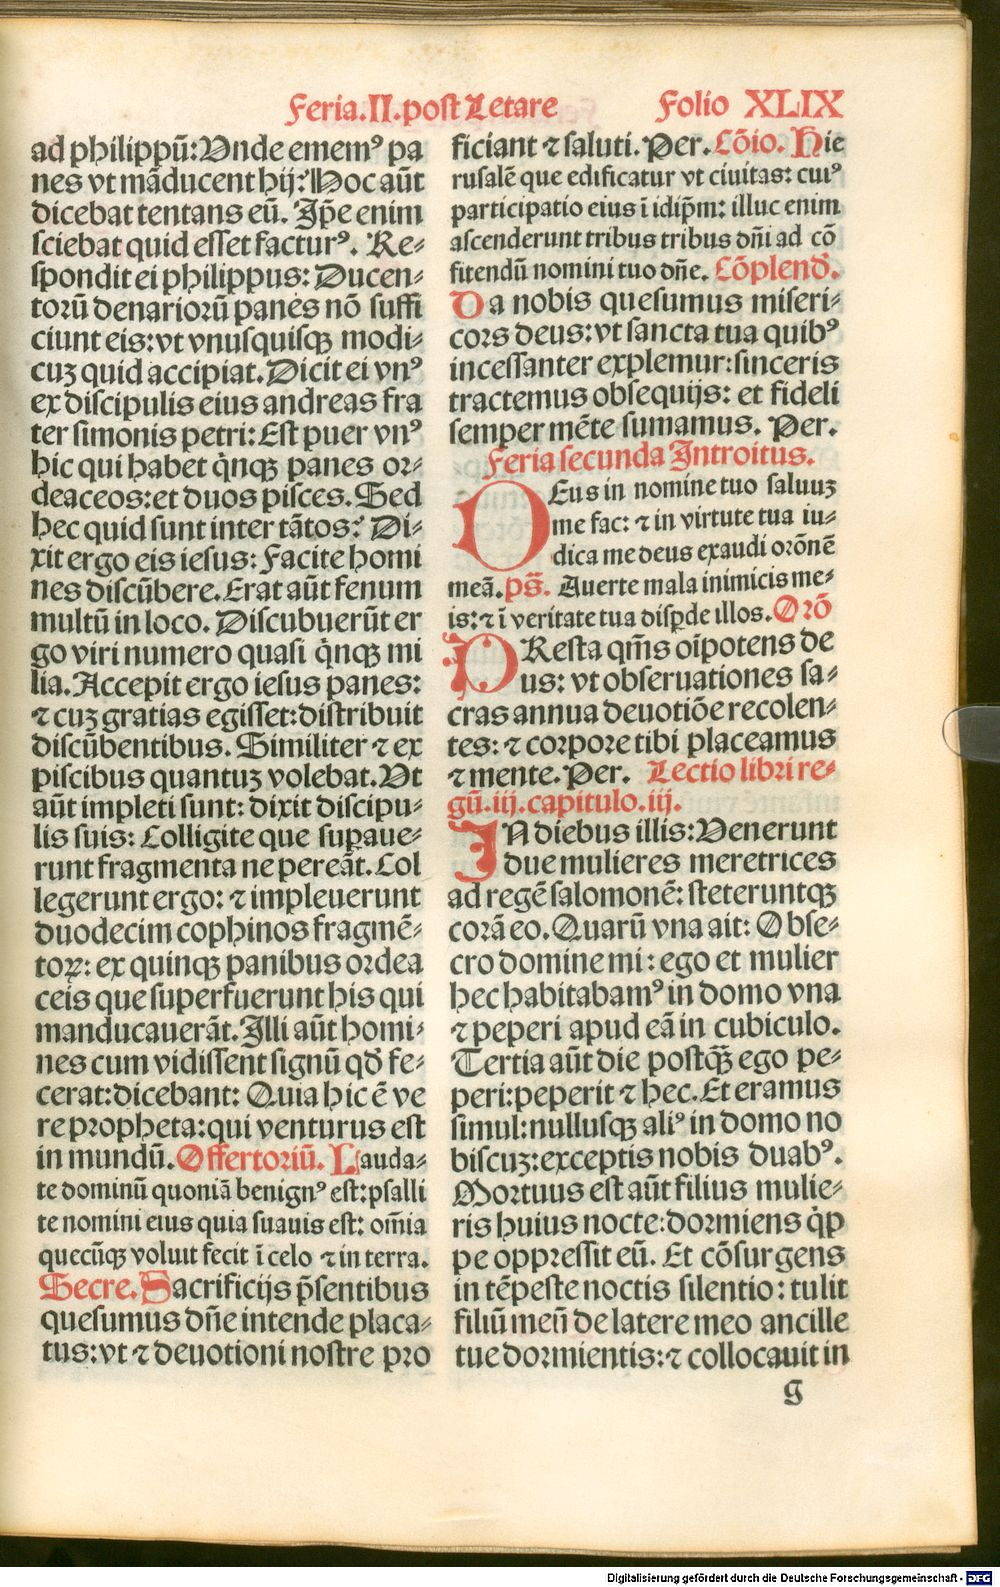 Feria.II.post Letare Folio XLIX
ad philippū: Vnde ememꝰ pa
nes vt māducent hij: Hoc aūt
dicebat tentans eū. Ip̄e enim
sciebat quid esset facturꝰ. Re⸗
spondit ei philippus: Ducen⸗
torū denariorū panes nō suffi
ciunt eis: vt vnusquisqꝫ modi⸗
cuꝫ quid accipiat. Dicit ei vnꝰ
ex discipulis eius andreas fra
ter simonis petri: Est puer vnꝰ
hic qui habet q̇nqꝫ panes or⸗
deaceos: et duos pisces. Sed
hec quid sunt inter tātos: Di⸗
xit ergo eis iesus: Facite homi
nes discūbere. Erat aūt fenum
multū in loco. Discubuerūt er
go viri numero quasi q̇nqꝫ mi
lia. Accepit ergo iesus panes:
⁊ cuꝫ gratias egisset: distribuit
discūbentibus. Similiter ⁊ ex
piscibus quantuꝫ volebat. Vt
aūt impleti sunt: dixit discipu⸗
lis suis: Colligite que suꝑaue⸗
runt fragmenta ne pereāt. Col
legerunt ergo: ⁊ impleuerunt
duodecim cophinos fragmē⸗
toꝝ: ex quinqꝫ panibus ordea
ceis que superfuerunt his qui
manducauerāt. Illi aūt homi⸗
nes cum vidissent signū qd̄ fe⸗
cerat: dicebant: Quia hic ē ve
re propheta: qui venturus est
in mundū. Offertoriū. Lauda⸗
te dominū quoniā benignꝰ est: psalli
te nomini eius quia suauis est: om̄ia
quecūqꝫ voluit fecit ī celo ⁊ in terra.
Secre. Sacrificijs p̄sentibus
quesumus dn̄e intende placa⸗
tus: vt ⁊ deuotioni nostre pro
ficiant ⁊ saluti. Per. Cōio. Hie
rusalē que edificatur vt ciuitas: cuiꝰ
participatio eius ī idip̄m: illuc enim
ascenderunt tribus tribus dn̄i ad cō
fitendū nomini tuo dn̄e. Cōplend̄.
Da nobis quesumus miseri⸗
cors deus: vt sancta tua quibꝰ
incessanter explemur: sinceris
tractemus obsequijs: et fideli
semper mēte sumamus. Per.
Feria secunda Introitus.
DEus in nomine tuo saluuꝫ
me fac: ⁊ in virtute tua iu⸗
dica me deus exaudi orōnē
meā. ps̄. Auerte mala inimicis me⸗
is: ⁊ ī veritate tua disꝑde illos. Orō
PResta qm̄s oīpotens de
us: vt obseruationes sa⸗
cras annua deuotiōe recolen⸗
tes: ⁊ corpore tibi placeamus
⁊ mente. Per. Lectio libri re⸗
gū. iij. capitulo. iij.
IN diebus illis: Venerunt
due mulieres meretrices
ad regē salomonē: steteruntqꝫ
corā eo. Quarū vna ait: Obse⸗
cro domine mi: ego et mulier
hec habitabamꝰ in domo vna
⁊ peperi apud eā in cubiculo.
Tertia aūt die postqꝫ̄ ego pe⸗
peri: peperit ⁊ hec. Et eramus
simul: nullusqꝫ aliꝰ in domo no
biscuꝫ: exceptis nobis duabꝰ.
Mortuus est aūt filius mulie⸗
ris huius nocte: dormiens q̇p
pe oppressit eū. Et cōsurgens
in tēpeste noctis silentio: tulit
filiū meū de latere meo ancille
tue dormientis: ⁊ collocauit in
g
Digitalisierung gefördert durch die Deutsche Forschungsgemeinschaft - DFG